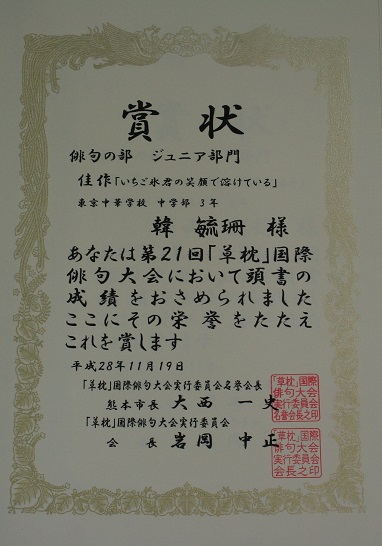 賞状
俳句の部　ジュニア部門
佳作「いちご氷君の笑顔で溶けている」
東京中華学校　中学部　3年
韓　毓珊　様
あなたは第21回「草枕」国際
俳句大会において頭書の
成績をおさめられました
ここにその栄誉をたたえ
これを賞します
平成28年11月19日
「草枕」国際俳句大会実行委員会名誉会長
熊本市長　大西　一史
「草枕」国際俳句大会実行委員会
会　長　岩岡　中正
「草枕」国際
俳句大会
実行委員会
名誉会長之印
「草枕」国際
俳句大会
実行委員会
会長之印